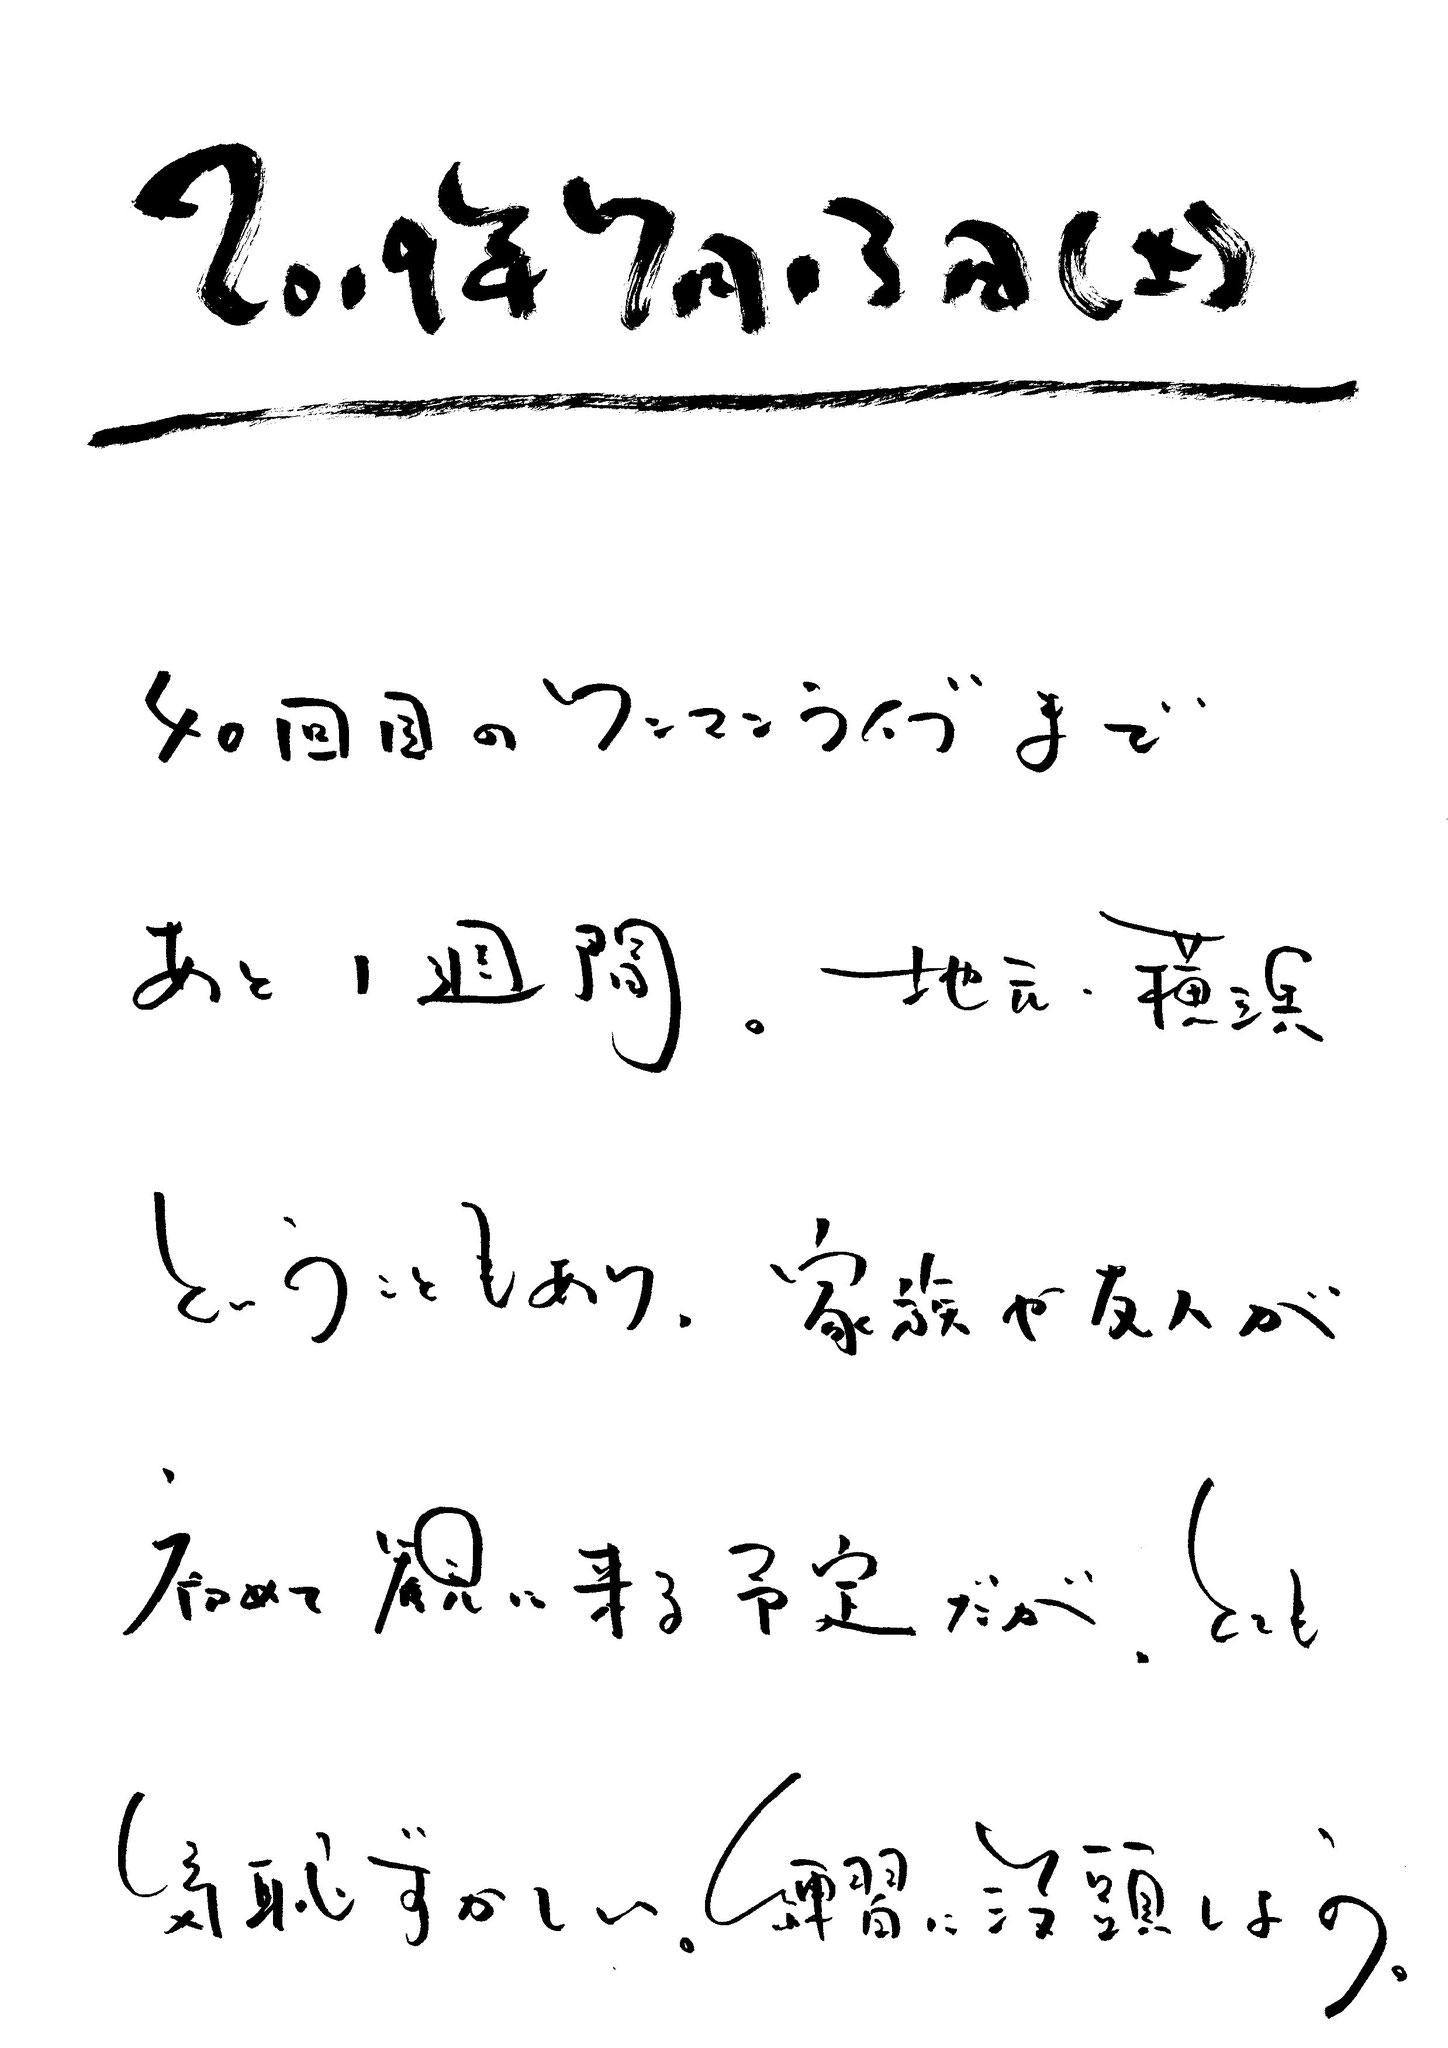 2019年7月13日(土)
40回目のワンマンライブまで
あと1週間。地元・横浜
ということもあり、家族や友人が
初めて観に来る予定だが、とても
気恥ずかしい。練習に没頭しよう。